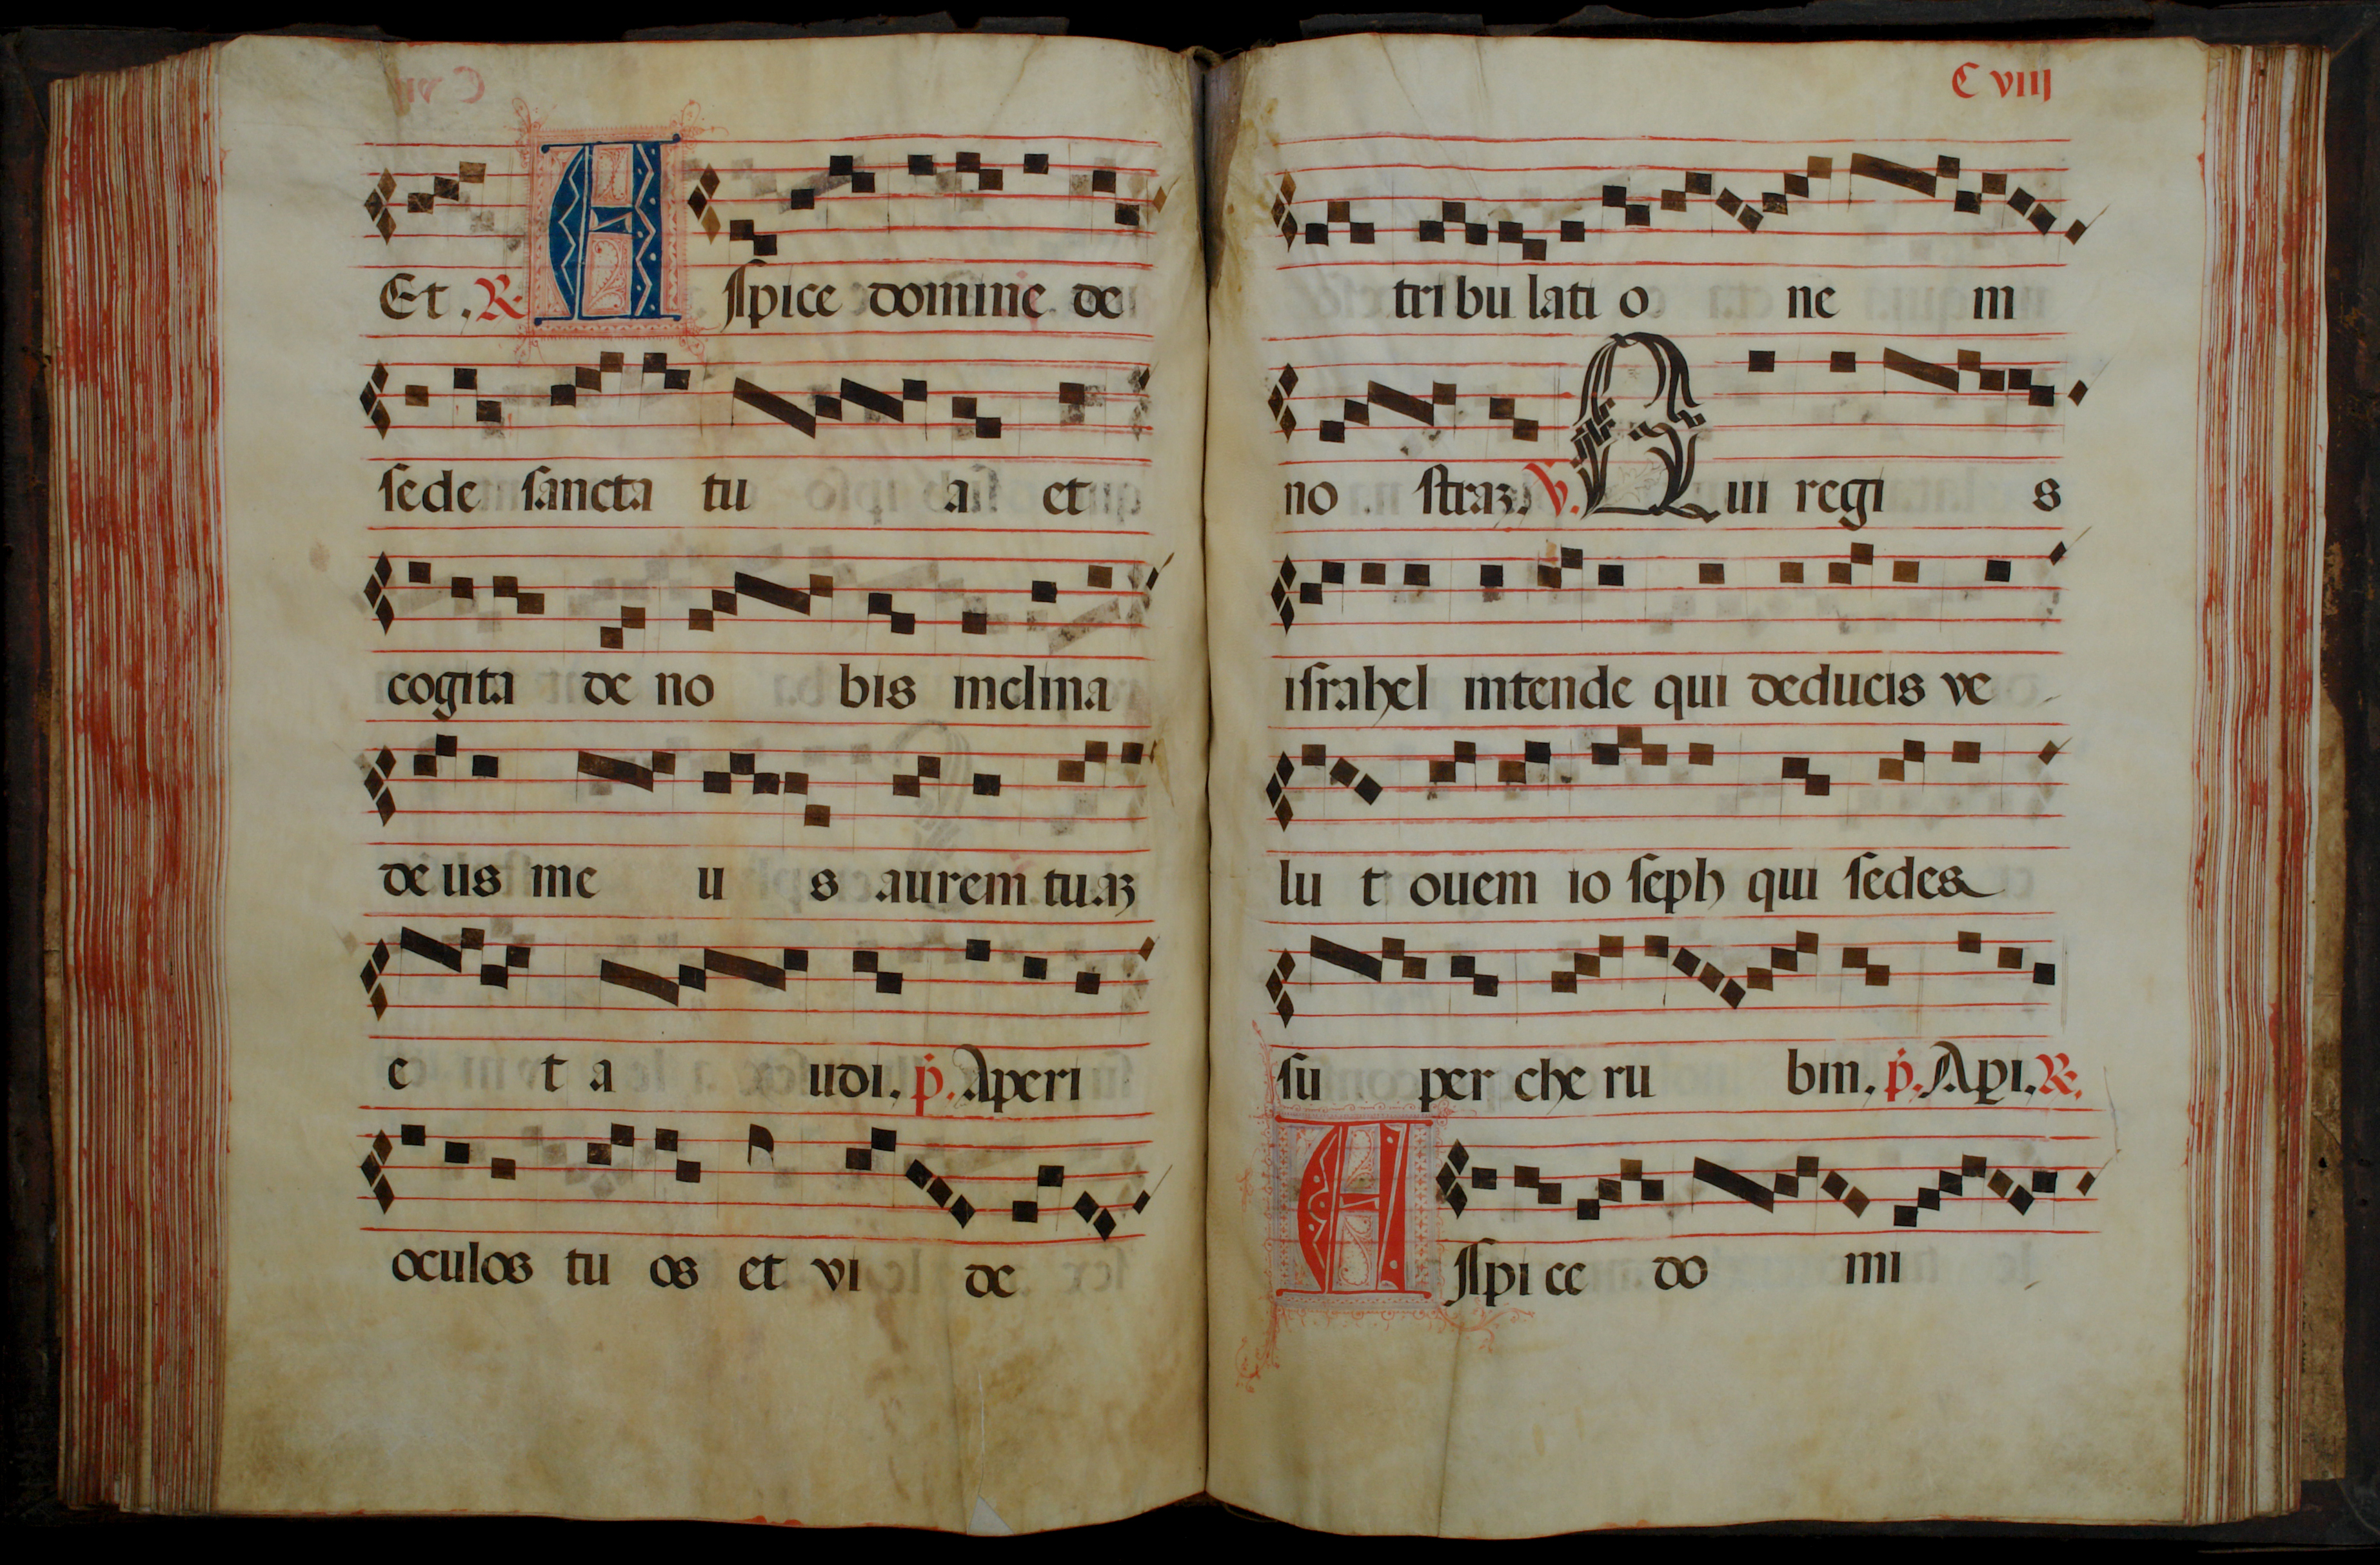 Et . R. Aſpice domine de
ſede ſancta tu a et
cogita de no bis inclina
deus me u s aurem tuaȝ
e t a udi. p. Aperi
oculos tu os et vi de
C VIIJ
tri bu lati o ne m
no ſtraȝ. V. Qui regi s
iſrahel intende qui deducis ve
lu t ouem io ſeph qui ſedes
ſu per che ru bin. p. Aꝑi. R.
Aſpi ce do mi